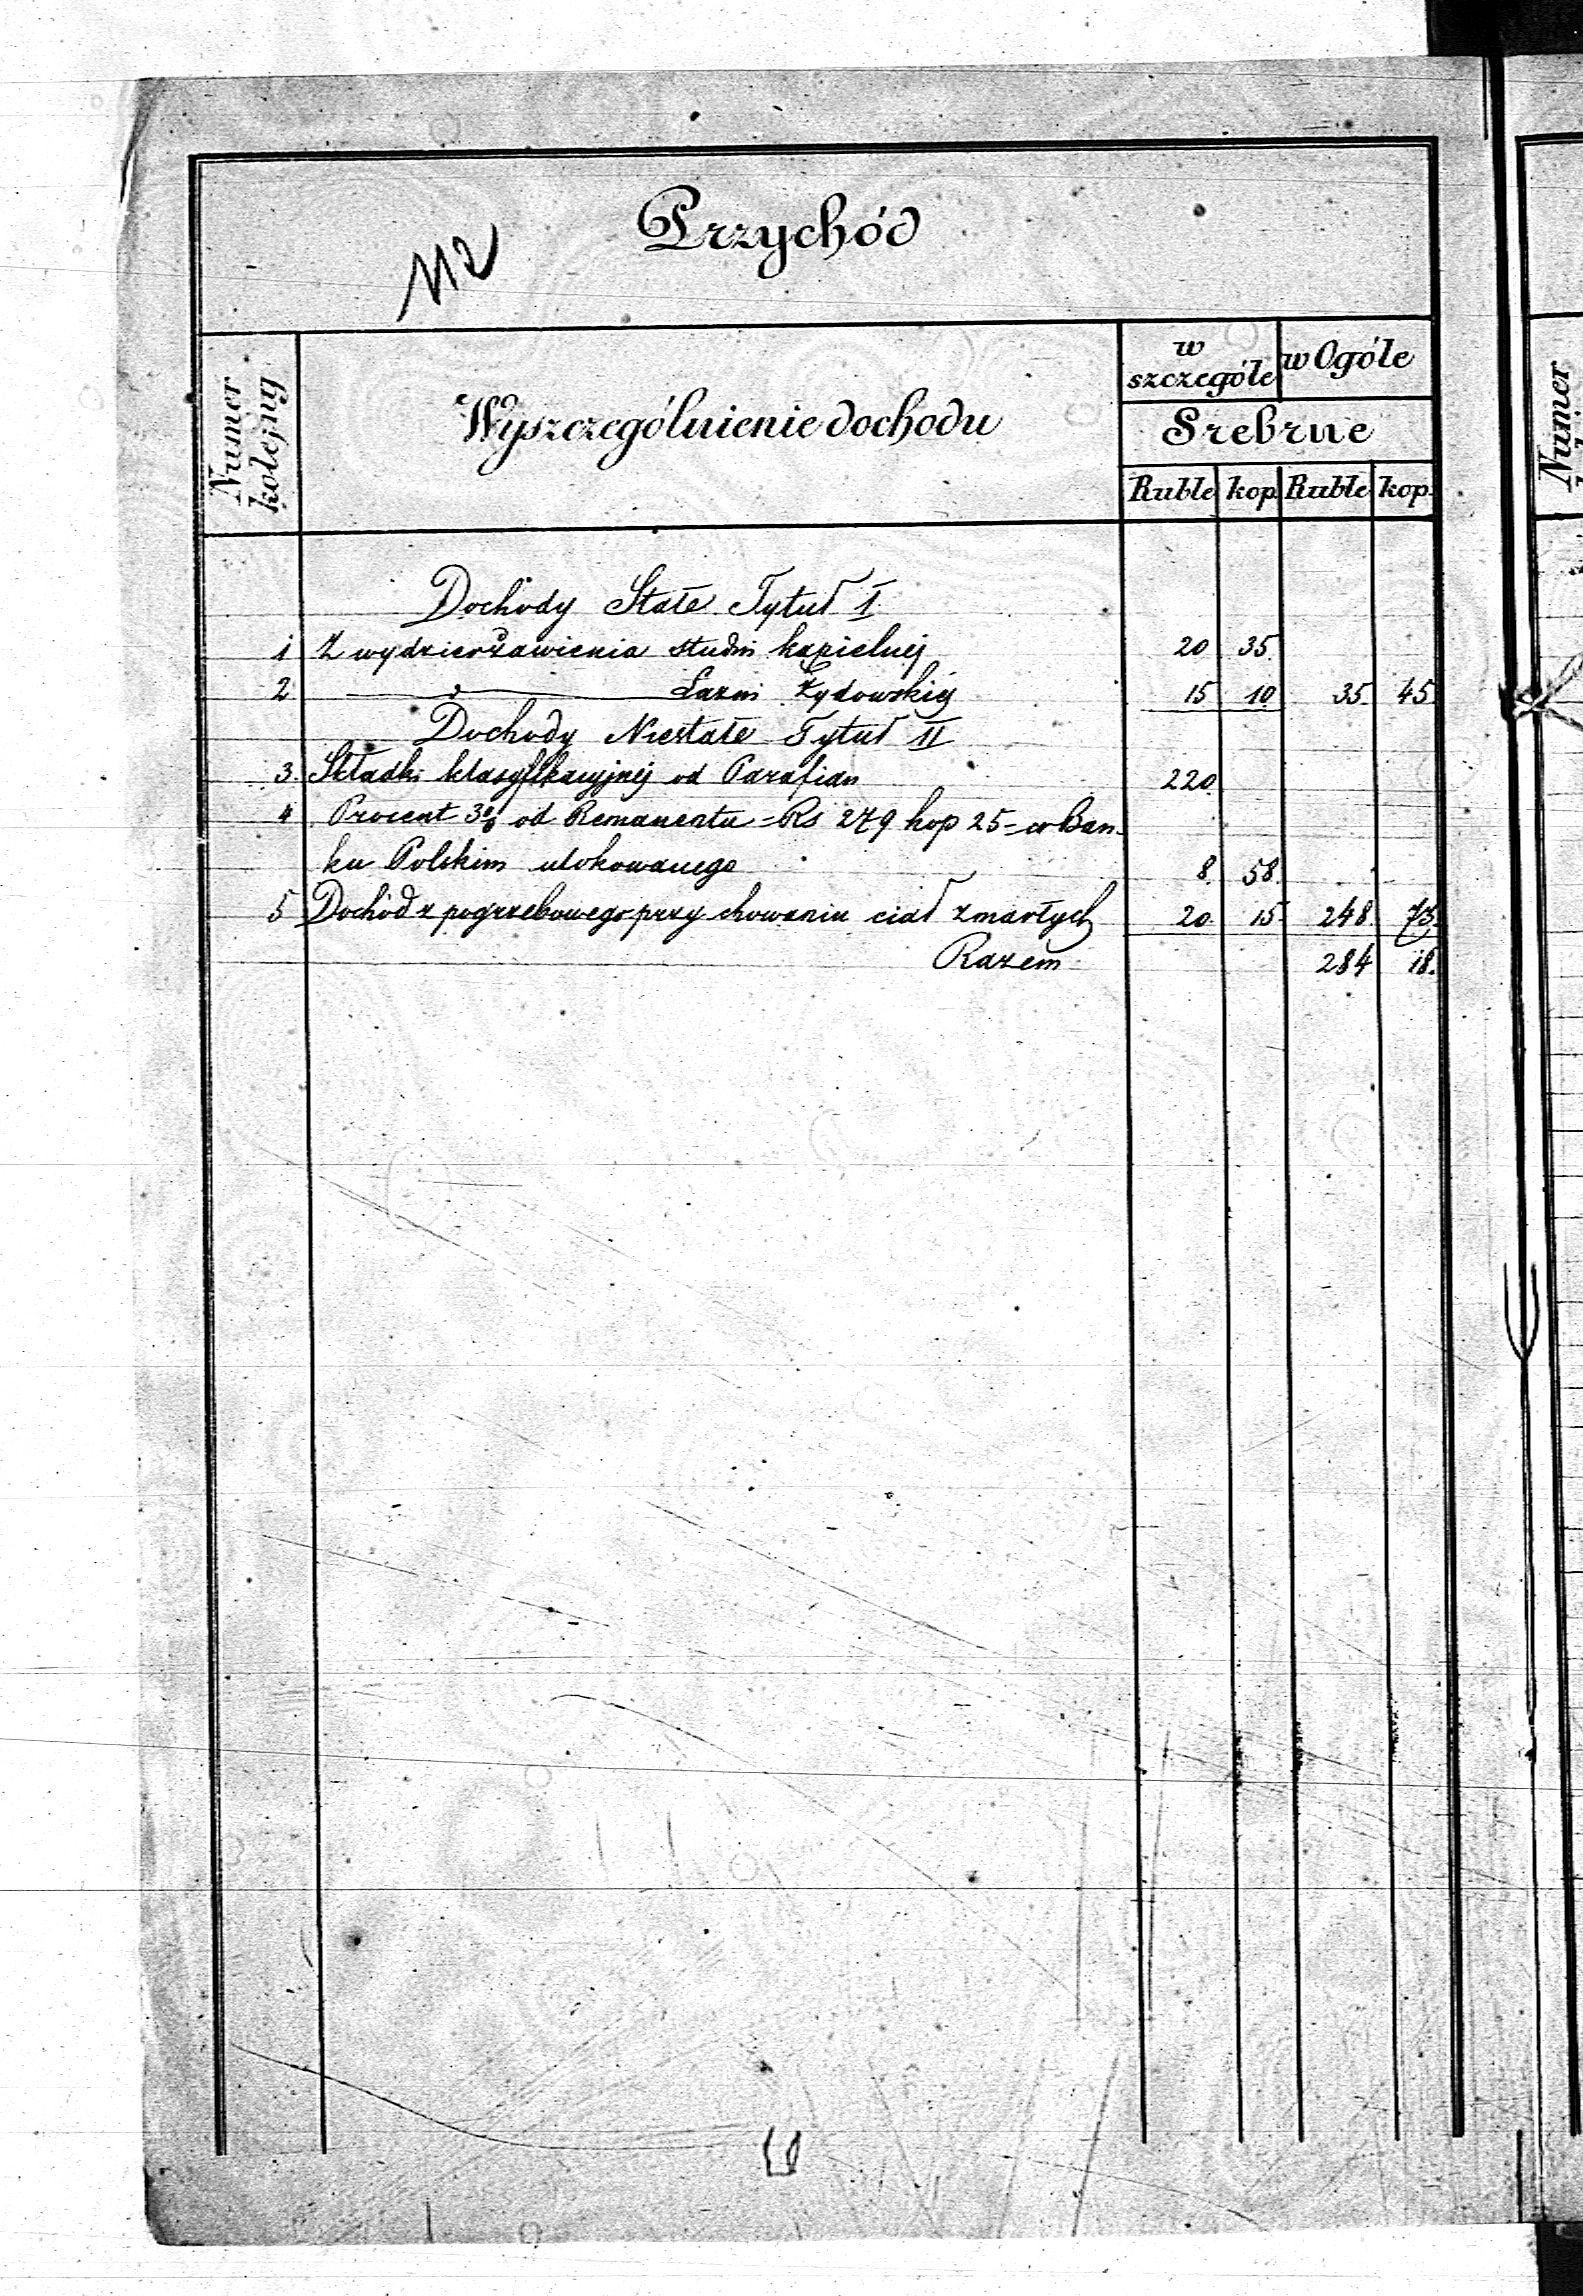 Przychód
112
Numer kolejny
Wyszczególnienie dochodu
w szczególe
w Ogóle
Srebrne
Ruble kop. Ruble kop.
Dochody Stałe Tytuł I
1 Z wydzierżawienia studni kąpielnej 20 35.
2 d Łazni Żydowskiéj 15 10 35. 45.
Dochody Niestałe Tytuł II
3. Składki klasyfikacyjnéj od Parafian 220.
4 Procent 3% od Remanentu = Rs 279 kop 25 = w Ban-
ku Polskim ulokowanego 8. 58.
5 Dochód z pogrzebowego przy chowaniu ciał zmarłych 20. 15. 248. 73.
Razem 284 18.
Numer